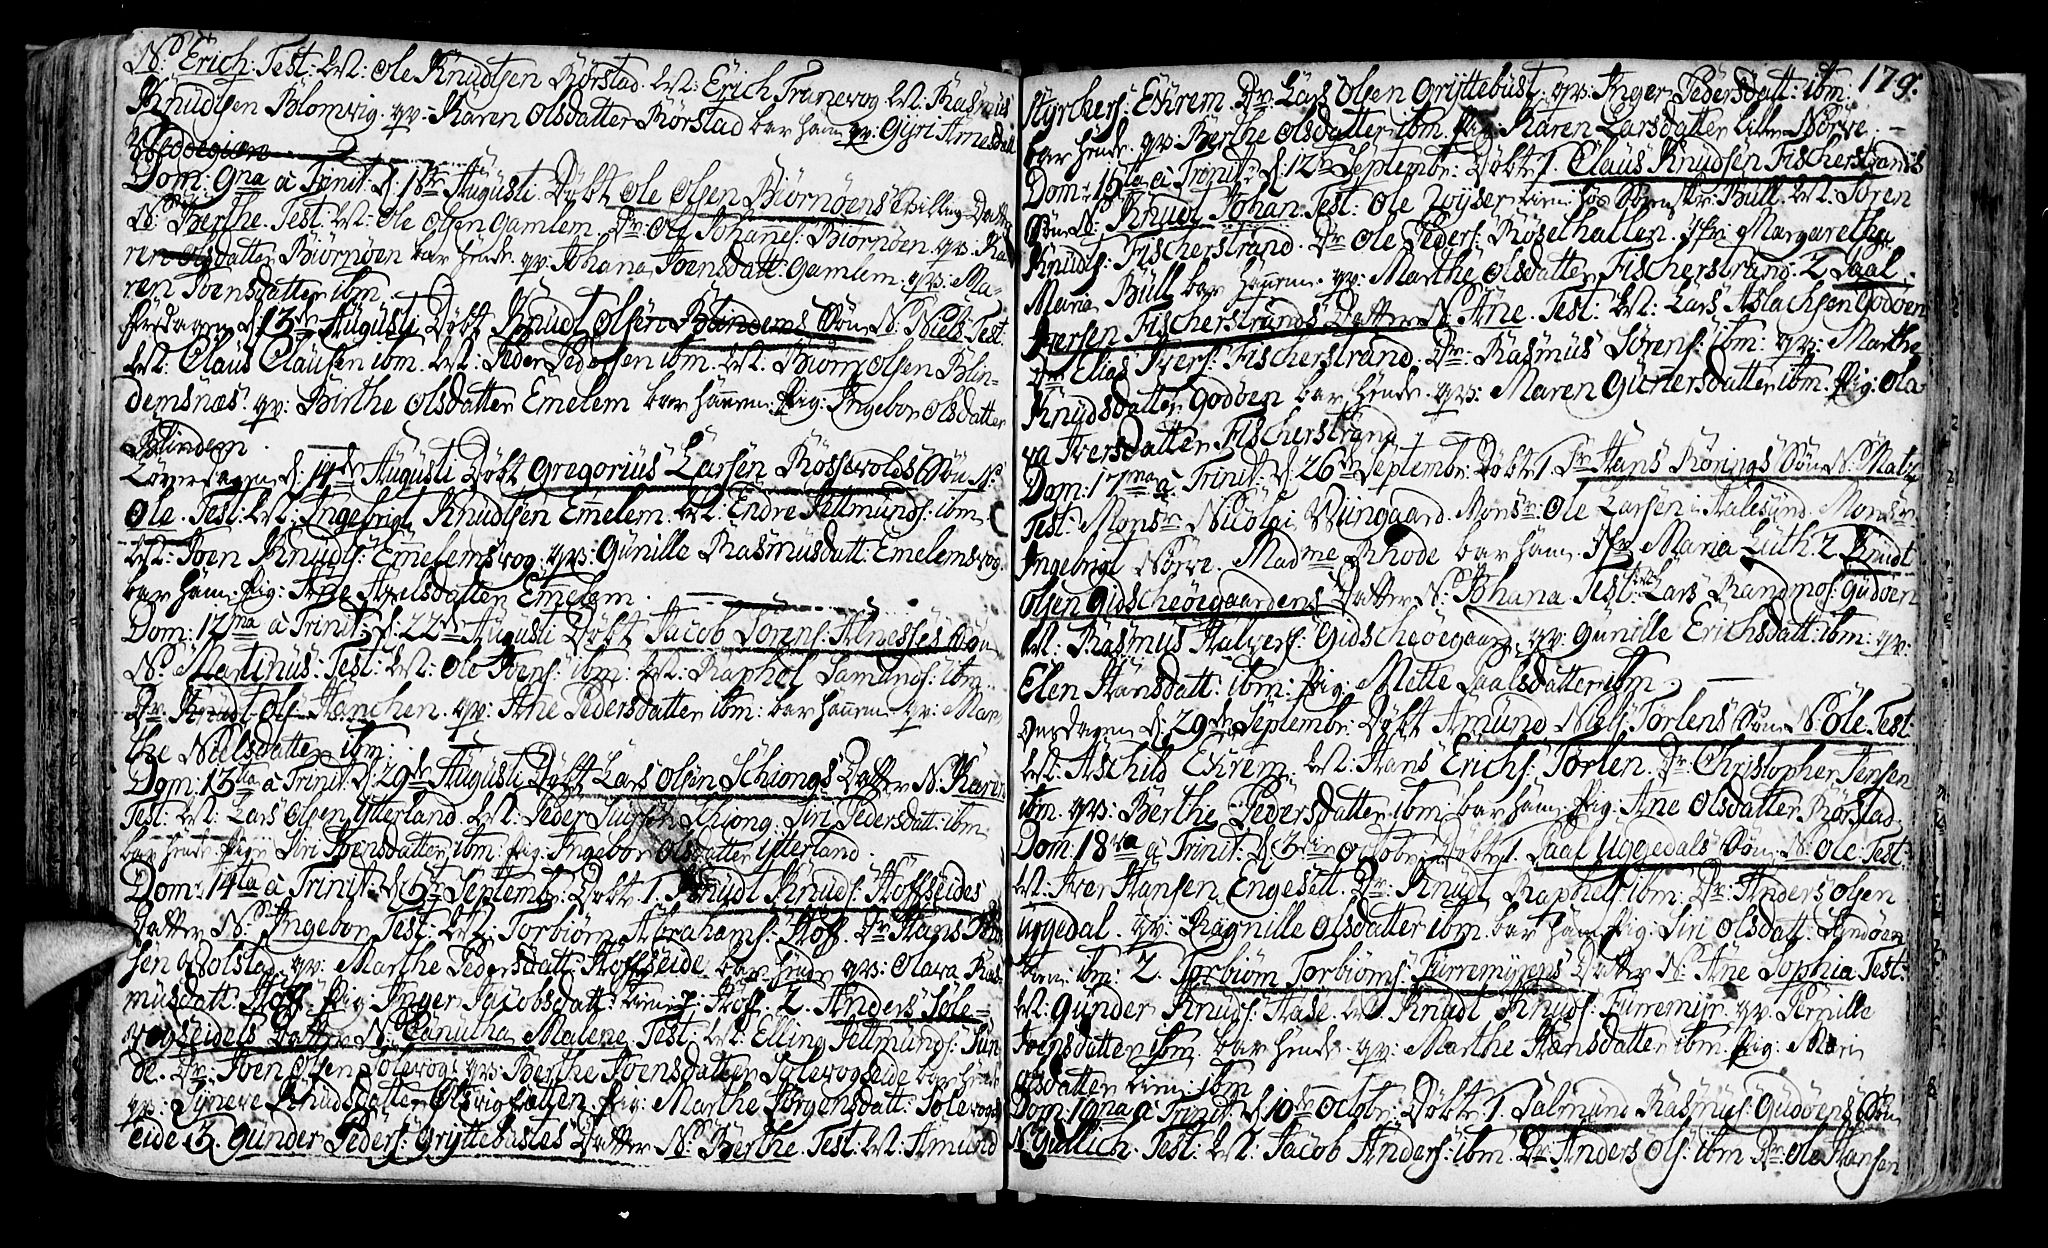 N. Erich. Test: M: Ole Knudtsen Rörstad. M: Erich Tranevog M: Rasmus
Knudtsen Blomvig. qv: Karen Olsdatter Rörstad bar ham qv: Gyri Arnesdatt
Dom: 9na a Trinit: d: 1ste Augusti Döbt Ole Olsen Biörnöens Datter
N. Berthe. Test: M: Ole Olsen Gamlem. Dr. Ole Johans: Biörnöen. qv: Ka-
ren Olsdatter Biörnöen bar hende. qv: Johana Joensdatt: Gamlem. qv: Ma-
ren Joensdatter ibm.
Fredagen d: 13de Augusti Döbt Knudt Olsen Blindems Sön N. Niels Test
M: Claus Clausen ibm. M: Peder Pedersen ibm. M: Biörn Olsen Blin-
demsnæs. qv: Birthe Olsdatter Emelem bar hannem. Pig: Ingebor Olsdatter
Blindem.
Löverdagen d: 14de Augusti Döbt Gregorius Larsen Rossevolds Sön N:
Ole. Test: M: Ingebrigt Knudtsen Emelem. M: Endre Tellmunds: ibm
M: Joen Knuds: Emelemsvog. qv: Gunille Rasmusdatt: Emelemsvog
bar ham. Pig: Ane Axelsdatter Emelem.
Dom: 12ma a Trinit: d: 22de Augusti Döbt Jacob Sörens: Alnesses Sön
N. Martinus. Test: M: Ole Joens: ibm: M: Raphel Samuels: ibm.
Dr. Knudt Ols: Hanchen. qv: Ane Pedersdatter ibm: bar hannem. qv: Mar-
the Nielsdatter ibm.
Dom: 13tia a Trinit: d: 29de Augusti Döbt Lars Olsen Schiongs Datter N. Karen
Test: M: Lars Olsen Ytterland. M: Peder Schiong. Siri Pedersdatt: ibm
bar hende. Pige Siri Joensdatter ibm: Pig: Ingebor Olsdatter Ytterland.
Dom: 14ta a Trinit: d: 5te Septembr: Döbt 1. Knudt Knuds: Hoffseides
Datter N. Ingebor Test: M: Torbiörn Abrahams: Hoff. Dr. Hans
sen Molstad. qv: Marthe Pedersdatt: Hoffseide bar hende qv: Olava Ras-
musdatt: Hoff. Pig: Inger Jacobsdatt: Hoff. 2. Anders Sole-
vogseidets Datter N. Canutha Malene Test: M: Elling Tellmunds:
de. Dr. Joen Olsen Solevog: qv: Berthe Joensdatter Solevogseide bar hende
qv: Syneve Knudsdatter Olsvig Pig: Marthe Jörgensdatt: Solevogs
eide 3. Gunder Peders: Gryttebustes Datter N. Berthe. Test: M: Amund
179.
Styrkers: Eskrem. Dr. Lars Olsen Gryttebust. qv: Inger Pedersdatt: ibm:
bar hende. qv: Berthe Olsdatter ibm. Pig: Karen Larsdatter Nörve.
Dom: 15ta a Trinit: d: 12te Septembr: Döbt 1. Claus Knudsen Fischerstrands
Sön N. Knudt Johan. Test: Ole hos Bull. M: Sören
Knuds: Fischerstrand. Dr. Ole Peders: Röselhallen. Jfr: Margaretha
Maria Bull bar hannem. qv: Marthe Olsdatter Fischerstrand. 2 Paal
Iversen Fischerstrands Datter N. Ane. Test: M: Lars Aslachsen Godöen
Dr. Elias Ivers: Fischerstrand. Dr. Rasmus Sörens: ibm: qv: Marthe
Knudsdatter Godöen bar hende. qv: Maren Gunersdatter ibm. Pig: Ola-
va Iversdatter Fischerstrand.
Dom: 17ma a Trinit: d: 26de Septembr: Döbt 1. Sr. Hans Rönings Sön N. Matz
Test: Monsr: Nicolai Wungaard. Monsr: Ole Larsen i Aalesund. Monsr:
Ingebrigt Nörve. Madme Rhode bar ham. Jfr Maria Luth. 2 Knudt
Olsen Gidscheöegaardens Datter N. Johana Test: Lars Randmos: Gudöen
M: Rasmus Halvers: Gidscheöegaard. qv: Gunille Erichsdatt: ibm: qv:
Elen Hansdatt: ibm: Pig: Mette Paalsdatter ibm.
Onsdagen d: 29de Septembr: Döbt Amund Niels: Torlens Sön N. Ole. Test:
M: Aschild Eskrem. M: Hans Erichs: Torlen. Dr. Christopher Jensen
ibm. qv: Berthe Pedersdatter ibm: bar ham. Pig: Ane Olsdatter Rörstad.
Dom: 18va a Trinit: d: 3die Octobr: Döbt 1. Paal Uggedals Sön N. Ole. Test:
M: Iver Hansen Engesett. Dr. Knudt Raphels: ibm: Dr: Anders Olsen
Uggedal. qv: Ragnille Olsdatter ibm. bar ham Pig: Siri Olsdatt: Sandöen
ibm: 2. Torbiörn Torbiörns: Furremyrens Datter N. Ane Sophia Test:
M: Gunder Knuds: Hase. M: Knudt Knuds: Furremyr. qv: Pernille
Joensdatter ibm. bar hende. qv: Marthe Hansdatter ibm. Pig: Mari
Olsdatter ibm
Dom: 19na a Trinit: d: 10de Octbr: Döbt 1. Salmund Rasmus: Gudöens Sön
N. Gullich. Test: M: Jacob Anders: ibm. Dr. Anders Ols: ibm Dr. Ole Hansen